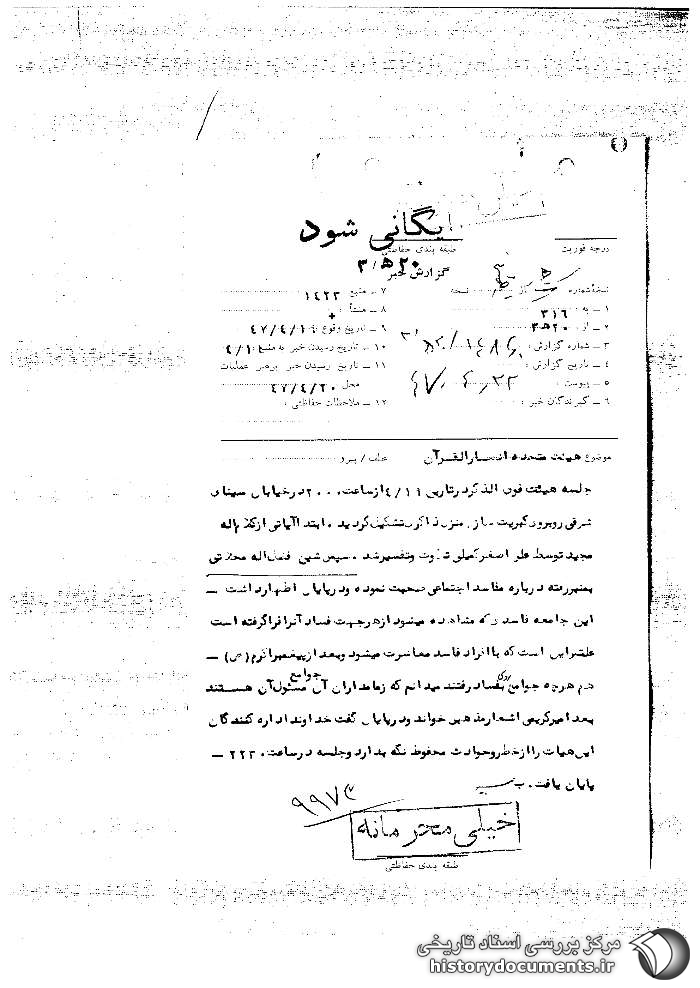 بایگانی شود
طبقه بندی حفاظتی
درجه فوریت
۲۰ ﻫ ۳
گزارش خبر
نسخه شماره
نسخه
۱ – به : ۳۱۶
۲ – از : ۲۰ ﻫ ۳
۳ – شماره گزارش :
۴ – تاریخ گزارش : ۴۷.۴.۲۲
۵ – پیوست :
۶ – گیرندگان خبر :
۷ – منبع ۱۴۲۳
۸ – منشأ :
۹ – تاریخ وقوع :
۱۰ – تاریخ رسیدن خبر به منبع :
۱۱ – تاریخ رسیدن خبر برهبر عملیات
محل ۴۷/۴/۲۰
۱۲ – ملاحظات حفاظتی :
موضوع هیئت متحده انصارالقرآن
عطف / پیرو
جلسه هیئت فوق الذکر در تاریخ ۴/۱۱ از ساعت ۲۰۰۰ در خیابان سینای
شرقی روبروی کبریت سازی منزل ذاکری تشکیل گردید . ابتدا آیاتی از کلام اله
مجید توسط علی اصغر کمیلی تلاوت و تفسیر شد . سپس شیخ فضل اله محلاتی
بمنبر رفته درباره مفاسد اجتماعی صحبت نموده و درپایان اظهار داشت –
این جامعه فاسدی که مشاهده میشود از هر جهت فساد آنرا فرا گرفته است
علتش این است که با افراد فاسد معاشرت میشود و بعد از پیغمبر اکرم (ص) –
هم هرچه جوامع روی بفساد رفتند میدانم که زمامداران آن جوامع مسئول آن هستند
بعد امیر کریمی اشعار مذهبی خواند و درپایان گفت خداوند اداره کنندگان
این هیات را از خطر و حوادث محفوظ نگه بدارد و جلسه در ساعت ۲۲۳۰ –
پایان یافت .
۹۹۷۳
خیلی محرمانه
طبقه بندی حفاظتی
مرکز بررسی اسناد تاریخی
historydocuments.ir